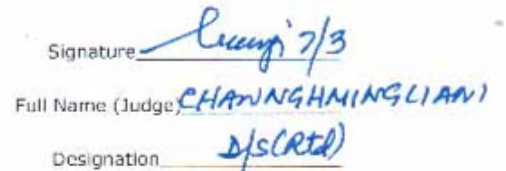 Signature 7/3
Full Name (Judge) CHAWNGHMINGLIANI
Designation D/S (Rtd)